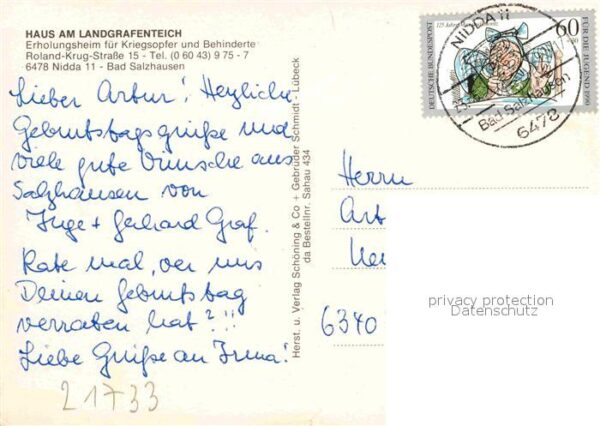 HAUS AM LANDGRAFENTEICH
Erholungsheim für Kriegsopfer und Behinderte
Roland-Krug-Straße 15 - Tel. (0 60 43) 9 75 - 7
6478 Nidda 11 - Bad Salzhausen
Lieber Artur! Herzliche
Geburtstagsgrüße und
viele gute Wünsche aus
Salzhausen von
Inge + Gerhard Graf.
Rate mal, wer uns
Deinen Geburtstag
verraten hat?!!
Liebe Grüße an Irma!
21733
Herst. u. Verlag Schöning & Co + Gebrüder Schmidt - Lübeck
da Bestellnr. Sahau 434
DEUTSCHE BUNDESPOST
125 Jahre Max und Moritz
60
FÜR DIE JUGEND 1990
NIDDA 11
Bad Salzhausen
6478
Herrn
Art
6340
privacy protection
Datenschutz